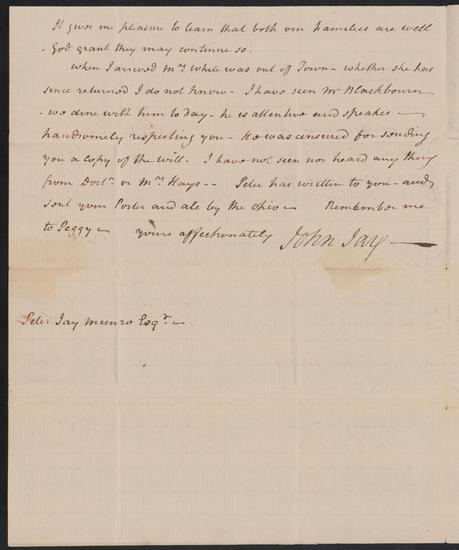 It gives me pleasure to learn that both our Families are well
- God grant they may continue so.
When I arrived Mrs. White was out of Town - whether she has
since returned I do not know. I have seen Mr Blackbourn
- we dine with him to day - he is attentive and speaks -
handsomely respecting you - He was censured for sending
you a copy of the will. I have not seen nor heard any thing
from Doctr. or Mrs. Hays -- Peter has written to you - and
sent your Porter and ale by the Ohio - Remember me
to Peggy - yours affectionately John Jay -
Peter Jay Munro Esqr. -